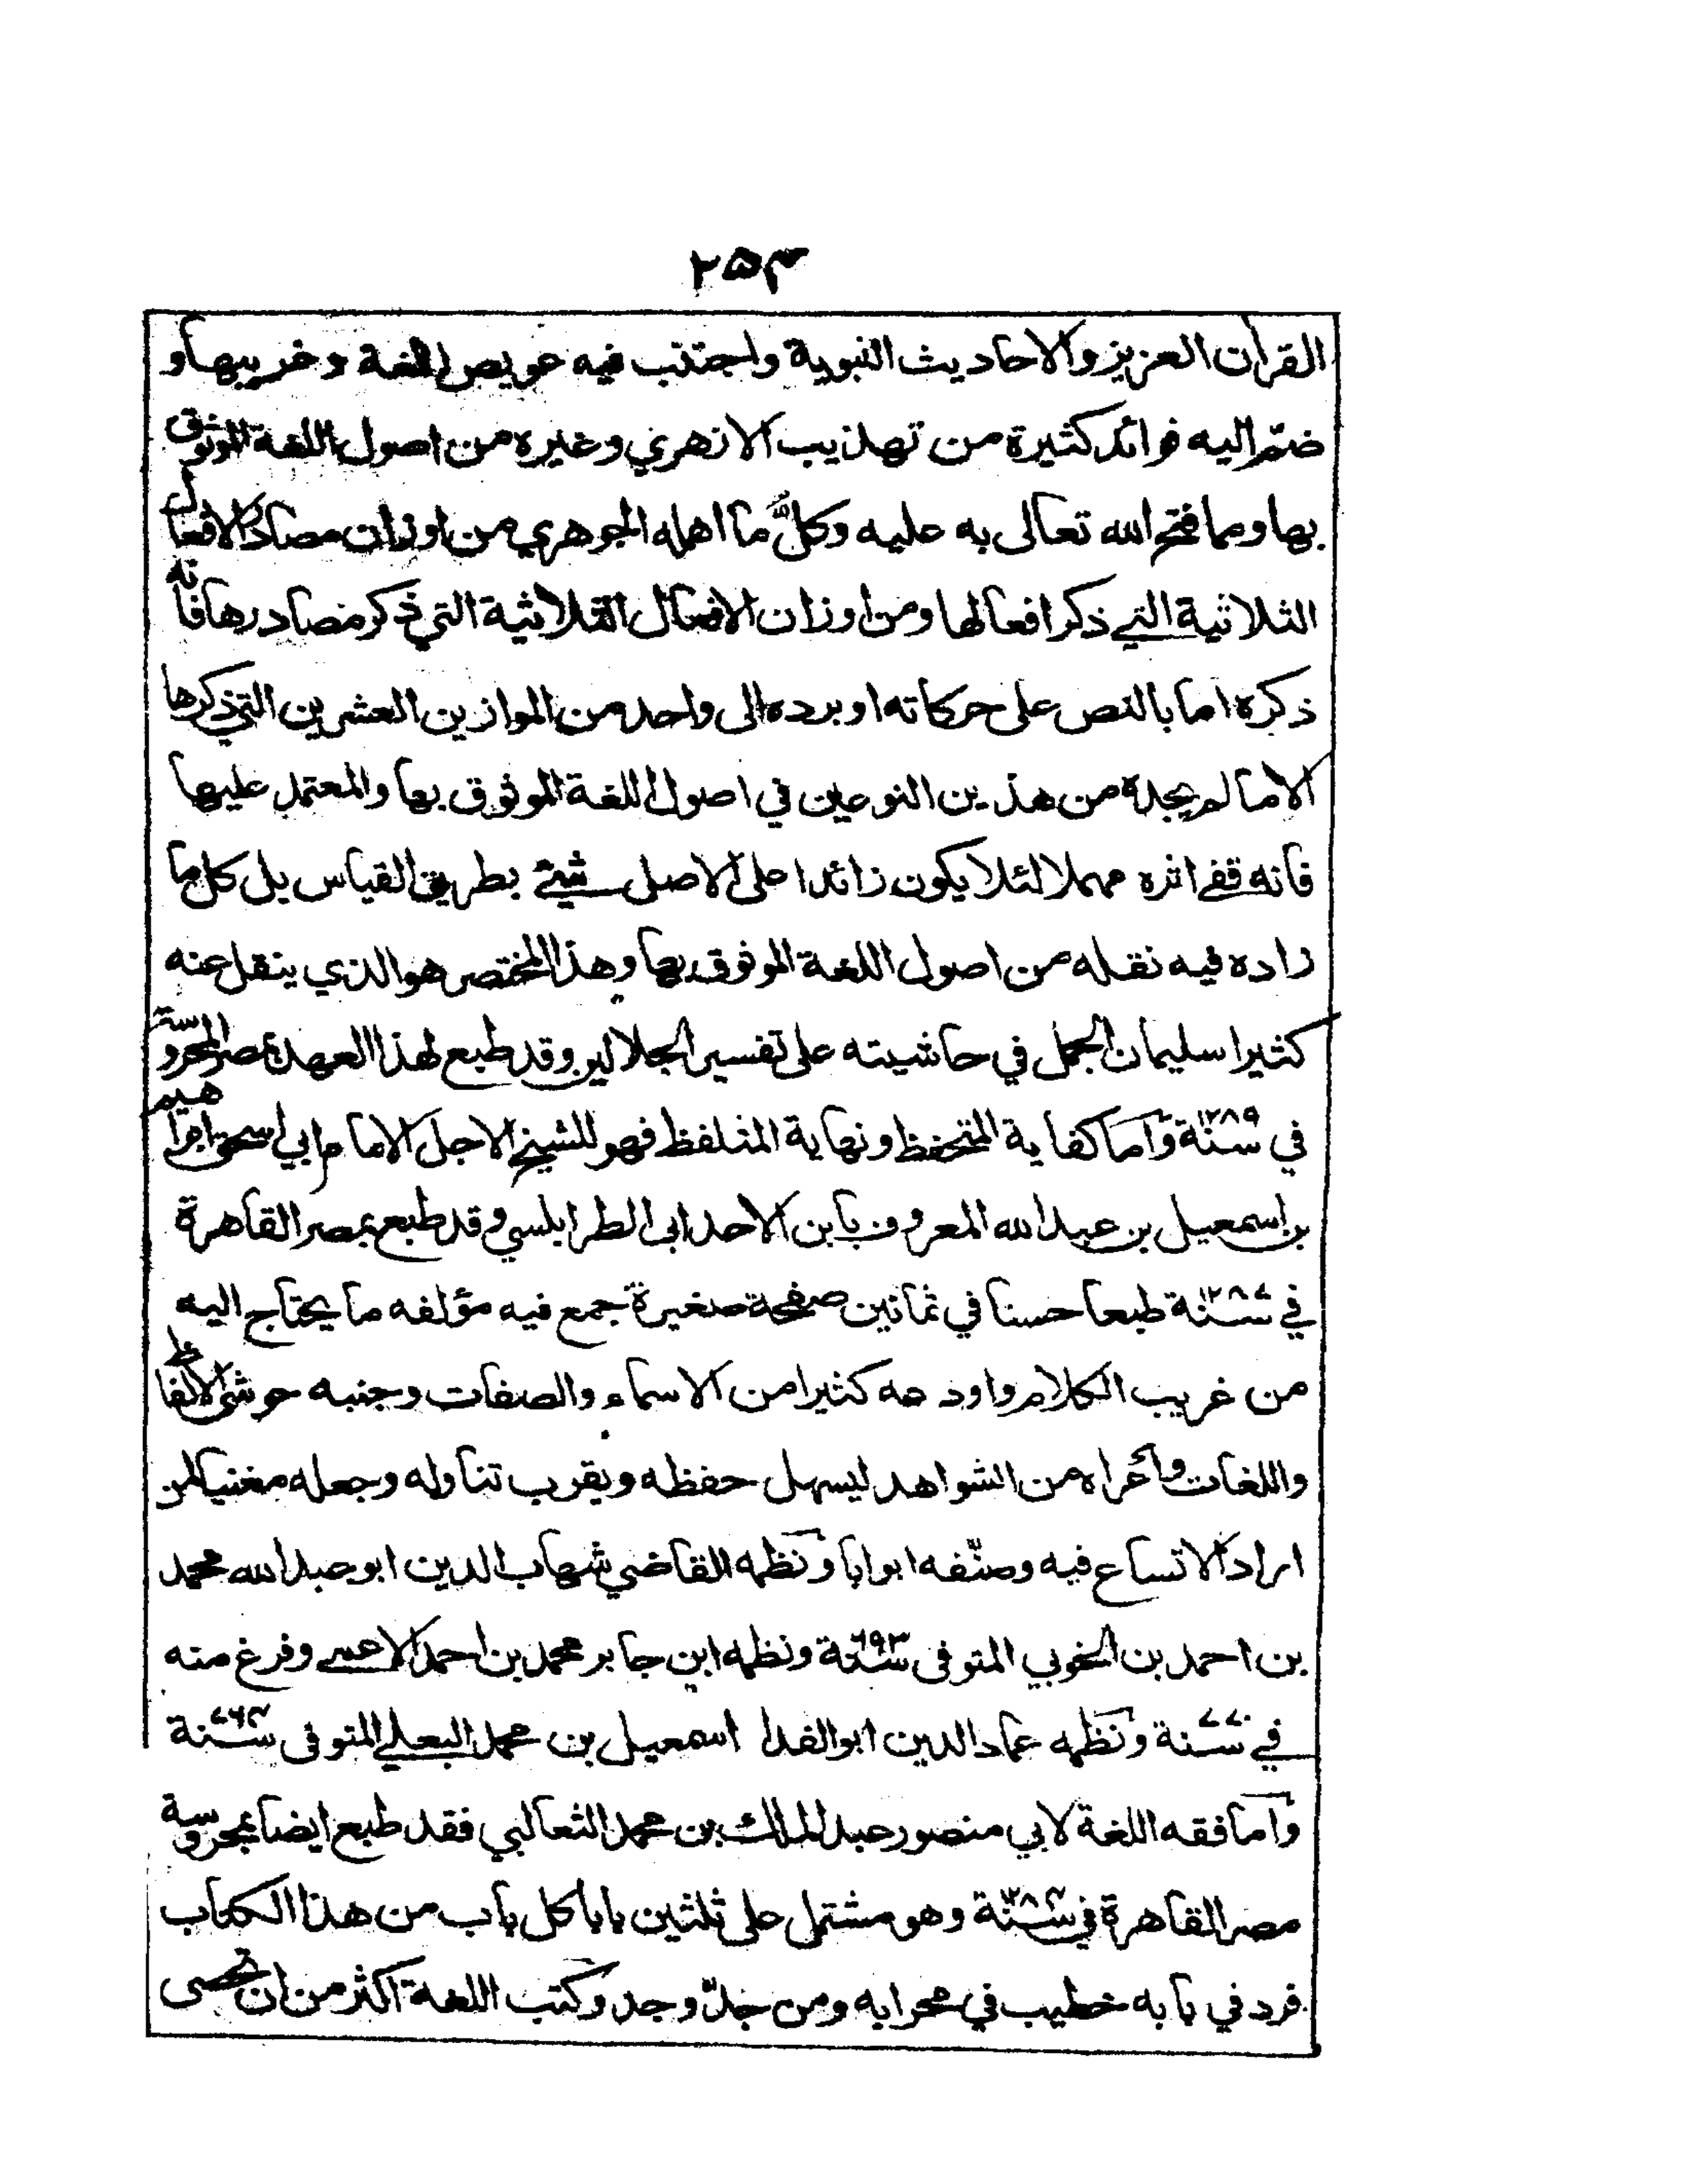 ٢٥٣
القرآن العزيز والاحاديث النبوية واجتنب فيه عويص اللغة وغريبها و
ضمّ اليه فوائد كثيرة من تهذيب الازهري وغيره من اصول اللغة الموثوق
بها ومما فتح الله تعالى به عليه وكلُّ ما اهمله الجوهري من اوزان مصادر الافعال
الثلاثية التي ذكر افعالها ومن اوزان الافعال الثلاثية التي ذكر مصادرها فانه
ذكره اما بالنص على حركاته او برده الى واحد من الموازين العشرين التي ذكرها
الا ما لم يجده من هذين النوعين في اصول اللغة الموثوق بها والمعتمد عليها
فانه قفى اثره مهملا لئلا يكون زائدا على الاصل شيئ بطريق القياس بل كل ما
زاده فيه نقله من اصول اللغة الموثوق بها وهذا المختصر هو الذي ينقل عنه
كثيرا سليمان الجمل في حاشيته على تفسير الجلالين وقد طبع لهذا العهد بمصر المحروسة
في سنة ١٢٨٩ وأما كفاية المتحفظ ونهاية المتلفظ فهو للشيخ الاجل الامام ابي اسحق ابراهيم
بن اسمعيل بن عبد الله المعروف بابن الاجدابى الطرابلسي وقد طبع بمصر القاهرة
في سنة ١٢٨٧ طبعا حسنا في ثمانين صفحة صغيرة جمع فيه مؤلفه ما يحتاج اليه
من غريب الكلام واودعه كثيرا من الاسماء والصفات وجنبه حوشى الالفاظ
واللغات وأعراه من الشواهد ليسهل حفظه ويقرب تناوله وجعله مغنيا لمن
اراد الاتساع فيه وصنّفه ابوابا ونظمه القاضي شهاب الدين ابو عبد الله محمد
بن احمد بن الخوبي المتوفى سنة ٦٩٣ ونظمه ابن جابر محمد بن احمد الاعمى وفرغ منه
في سنة ٧٧٠ ونظمه عماد الدين ابو الفدا اسمعيل بن محمد البعلي المتوفى سنة ٧٦٤
وأما فقه اللغة لابي منصور عبد الملك بن محمد الثعالبي فقد طبع ايضا بمحروسة
مصر القاهرة في سنة وهو مشتمل على ثلثين بابا كل باب من هذا الكتاب
فرد في بابه خطيب في محرابه ومن جدّ وجد وكتب اللغة اكثر من ان تحصى